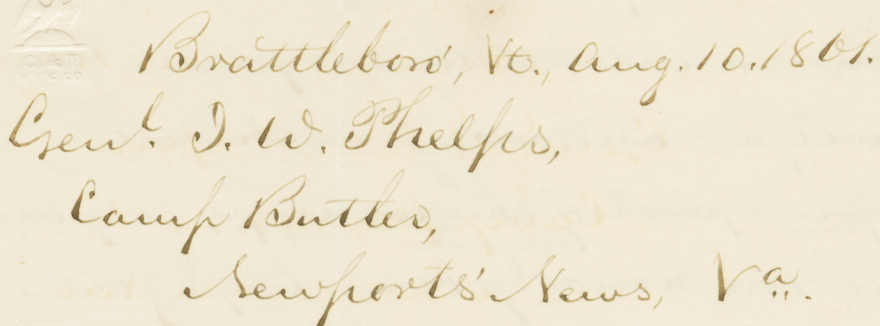 Brattleboro', Vt., Aug. 10. 1861.
Genl. J. W. Phelps,
Camp Butler,
Newports' News, Va.